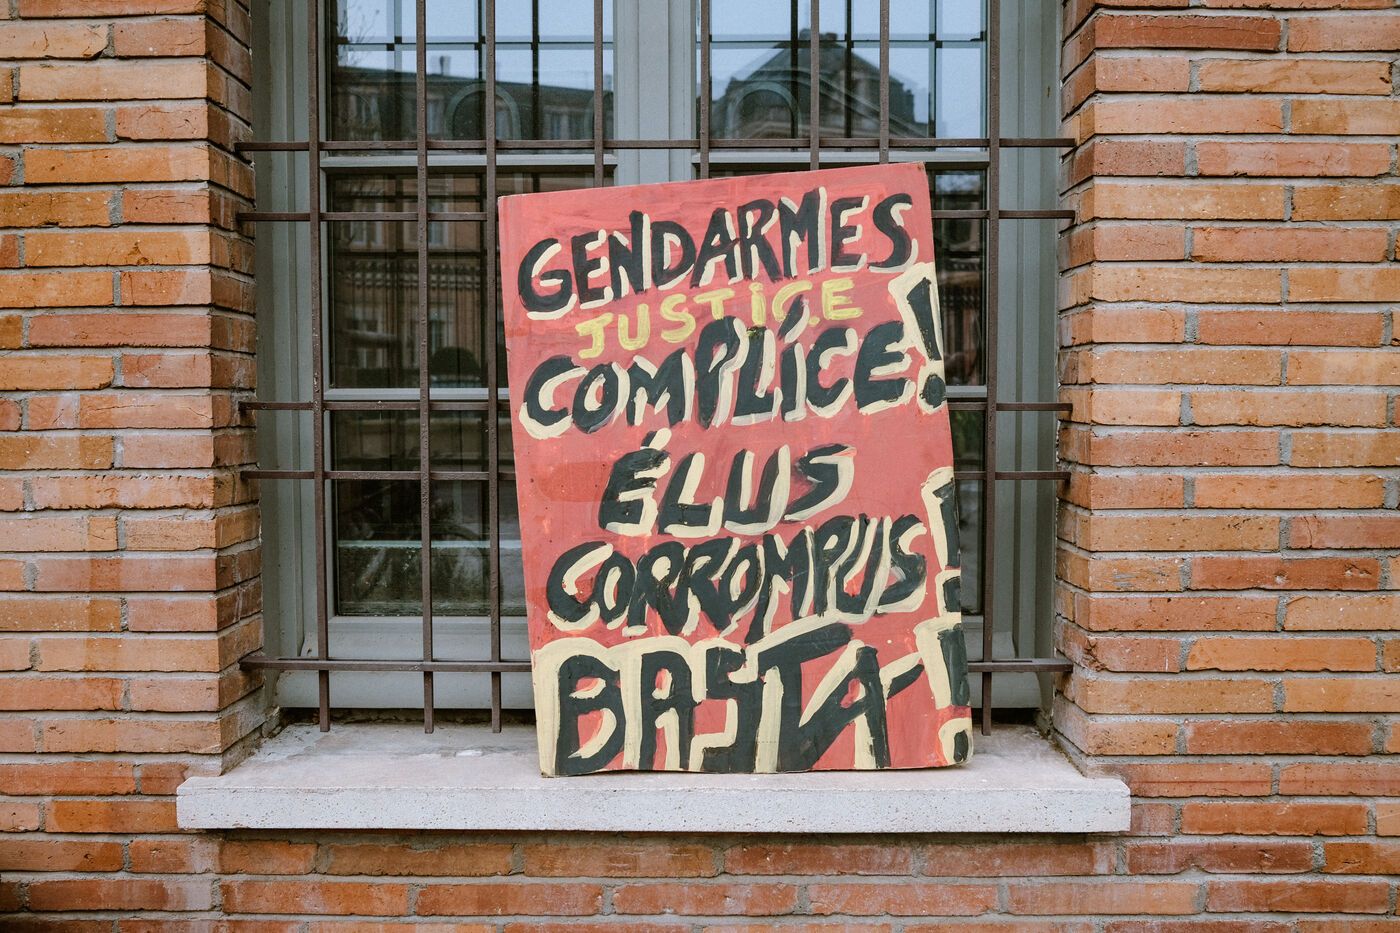 GENDARMES
JUSTICE
COMPLICE!
ÉLUS
CORROMPUS!
BASTA!